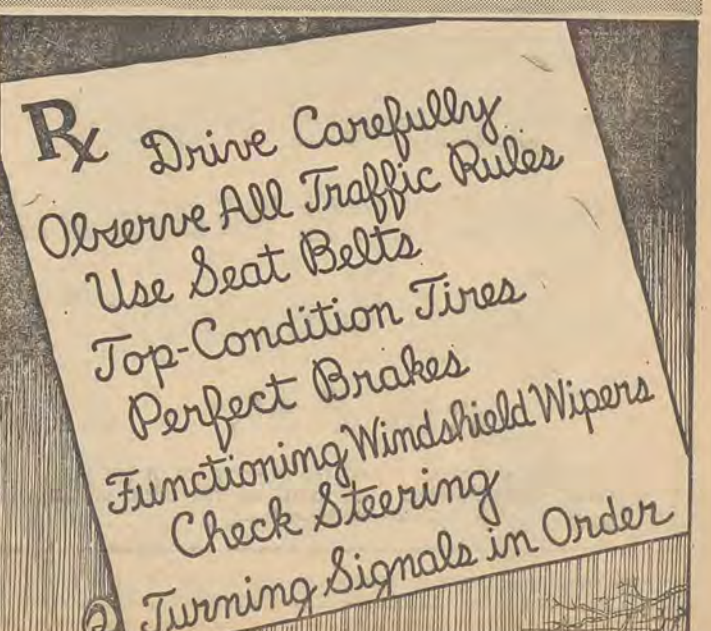 Rx Drive Carefully
Observe All Traffic Rules
Use Seat Belts
Top-Condition Tires
Perfect Brakes
Functioning Windshield Wipers
Check Steering
Turning Signals in Order